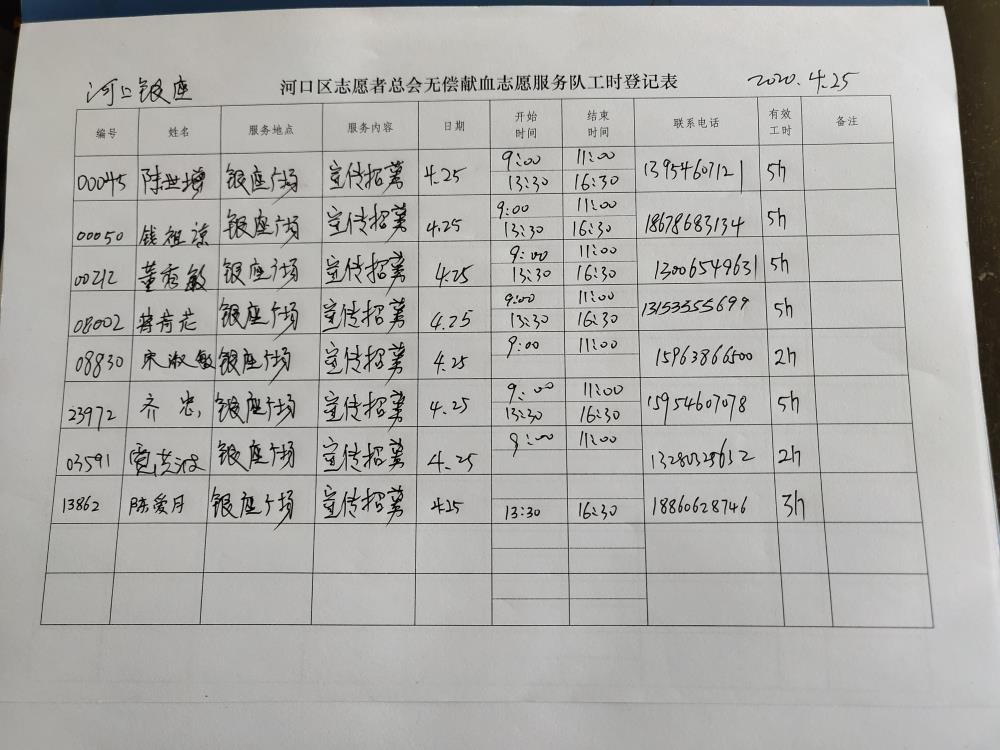 河口银座 河口区志愿者总会无偿献血志愿服务队工时登记表 2020.4.25
编号 姓名 服务地点 服务内容 日期 开始时间 结束时间 联系电话 有效工时 备注
00045 陈世增 银座广场 宣传招募 4.25 9:00 11:00 13954607121 5h
13:30 16:30
00050 钱祖谅 银座广场 宣传招募 4.25 9:00 11:00 18678683134 5h
13:30 16:30
00212 董秀敏 银座广场 宣传招募 4.25 9:00 11:00 13006549631 5h
13:30 16:30
08002 银座广场 宣传招募 4.25 9:00 11:00 13153555699 5h
13:30 16:30
08830 宋淑敏 银座广场 宣传招募 4.25 9:00 11:00 15963866500 2h
23972 齐忠 银座广场 宣传招募 4.25 9:00 11:00 15954607078 5h
13:30 16:30
03591 银座广场 宣传招募 4.25 9:00 11:00 2h
13862 陈爱月 银座广场 宣传招募 4.25 13:30 16:30 18860628746 3h